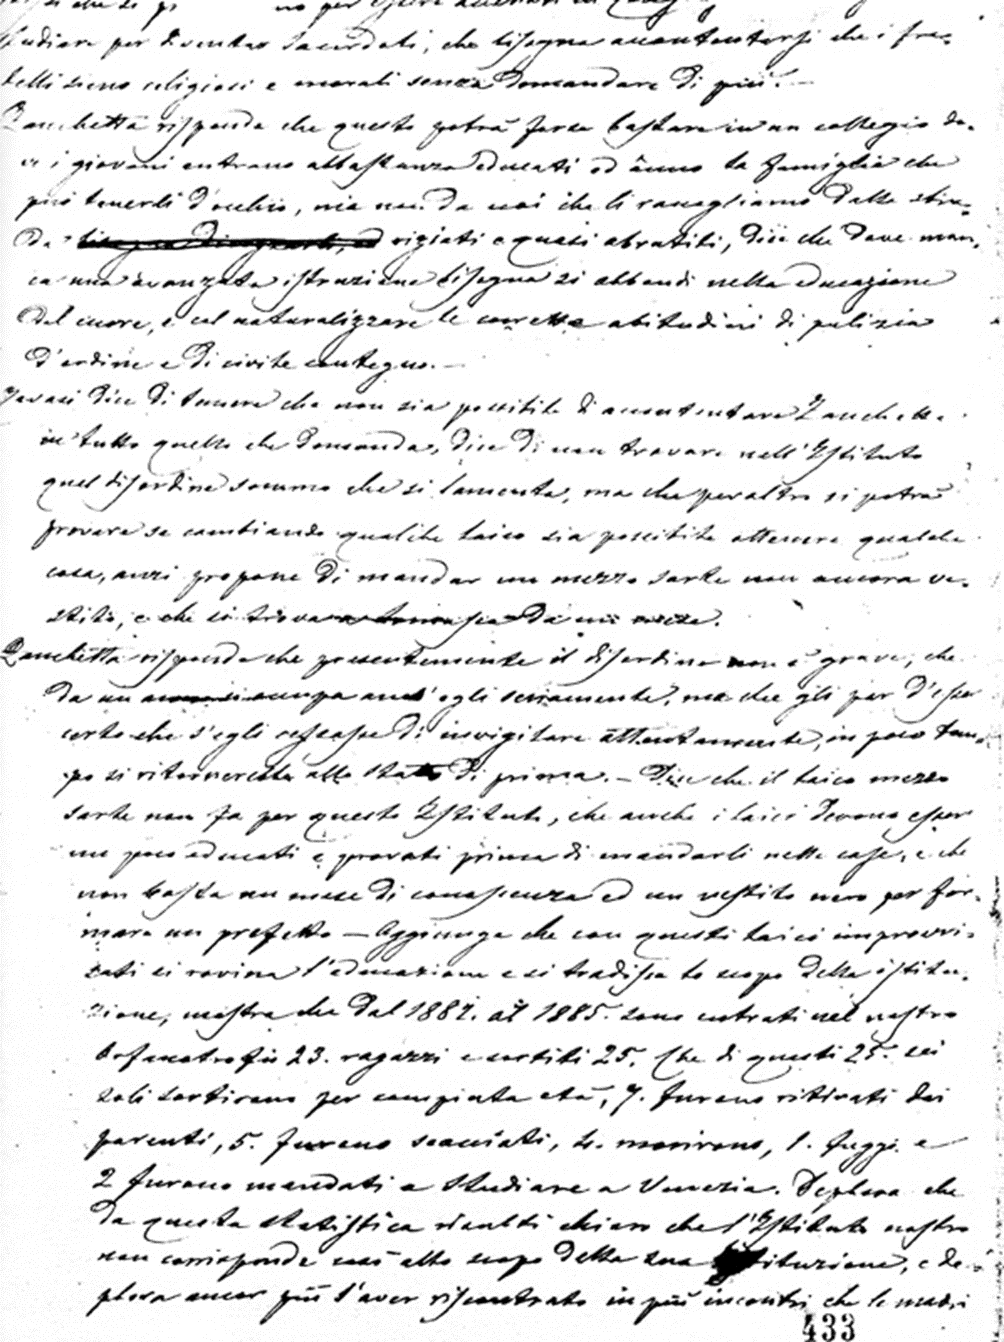 studiare per diventar sacerdoti, che bisogna accontentarsi che i fra-
telli sieno religiosi e morali senza domandare di più. —
Zanchetta risponde che questo potrà forse bastare in un collegio do-
ve i giovani entrano abbastanza educati ed ànno la famiglia che
può tenerli d'occhio, ma non da noi che li raccogliamo dalla stra-
da viziati e quasi abrutiti, dice che dove man-
ca una avanzata istruzione bisogna si abbondi nella educazione
del cuore, e col naturalizzare le corrette abitudini di pulizia
d'ordine e di civile contegno. —
dice di temere che non sia possibile di accontentare Zanchetta
in tutto quello che domanda, dice di non trovare nell'Istituto
quel disordine sommo che si lamenta, ma che peraltro si potrà
provare se cambiando qualche laico sia possibile ottenere qualche
cosa, anzi propone di mandar un mezzo sarte non ancora ve-
stito, e che si trova da un mese.
Zanchetta risponde che presentemente il disordine non è grave, che
da un egli seriamente, ma che gli par d'esser
certo che s'egli cessasse di invigilare attentamente, in poco tem-
po si ritornerebbe allo stato di prima. — Dice che il laico mezzo
sarte non fa per questo Istituto, che anche i laici devono esser
un poco educati e provati prima di mandarli nelle case, e che
non basta un mese di conoscenza ed un vestito nero per for-
mare un prefetto — Aggiunge che con questi laici improvvi-
sati si rovina l'educazione e si tradisce lo scopo della istitu-
zione, mostra che dal 1882. al 1885. sono entrati nel nostro
Orfanotrofio 23. ragazzi e sortiti 25. Che di questi 25. sei
soli sortirono per compiuta età, 7. furono ritirati dai
parenti, 5. furono scacciati, 4. morirono, 1. fuggì e
2 furono mandati a studiare a Venezia. Deplora che
da questa statistica risulti chiaro che l'Istituto nostro
non corrisponde così allo scopo della sua istituzione, e de-
plora ancor più l'aver riscontrato in più incontri che le madri
433